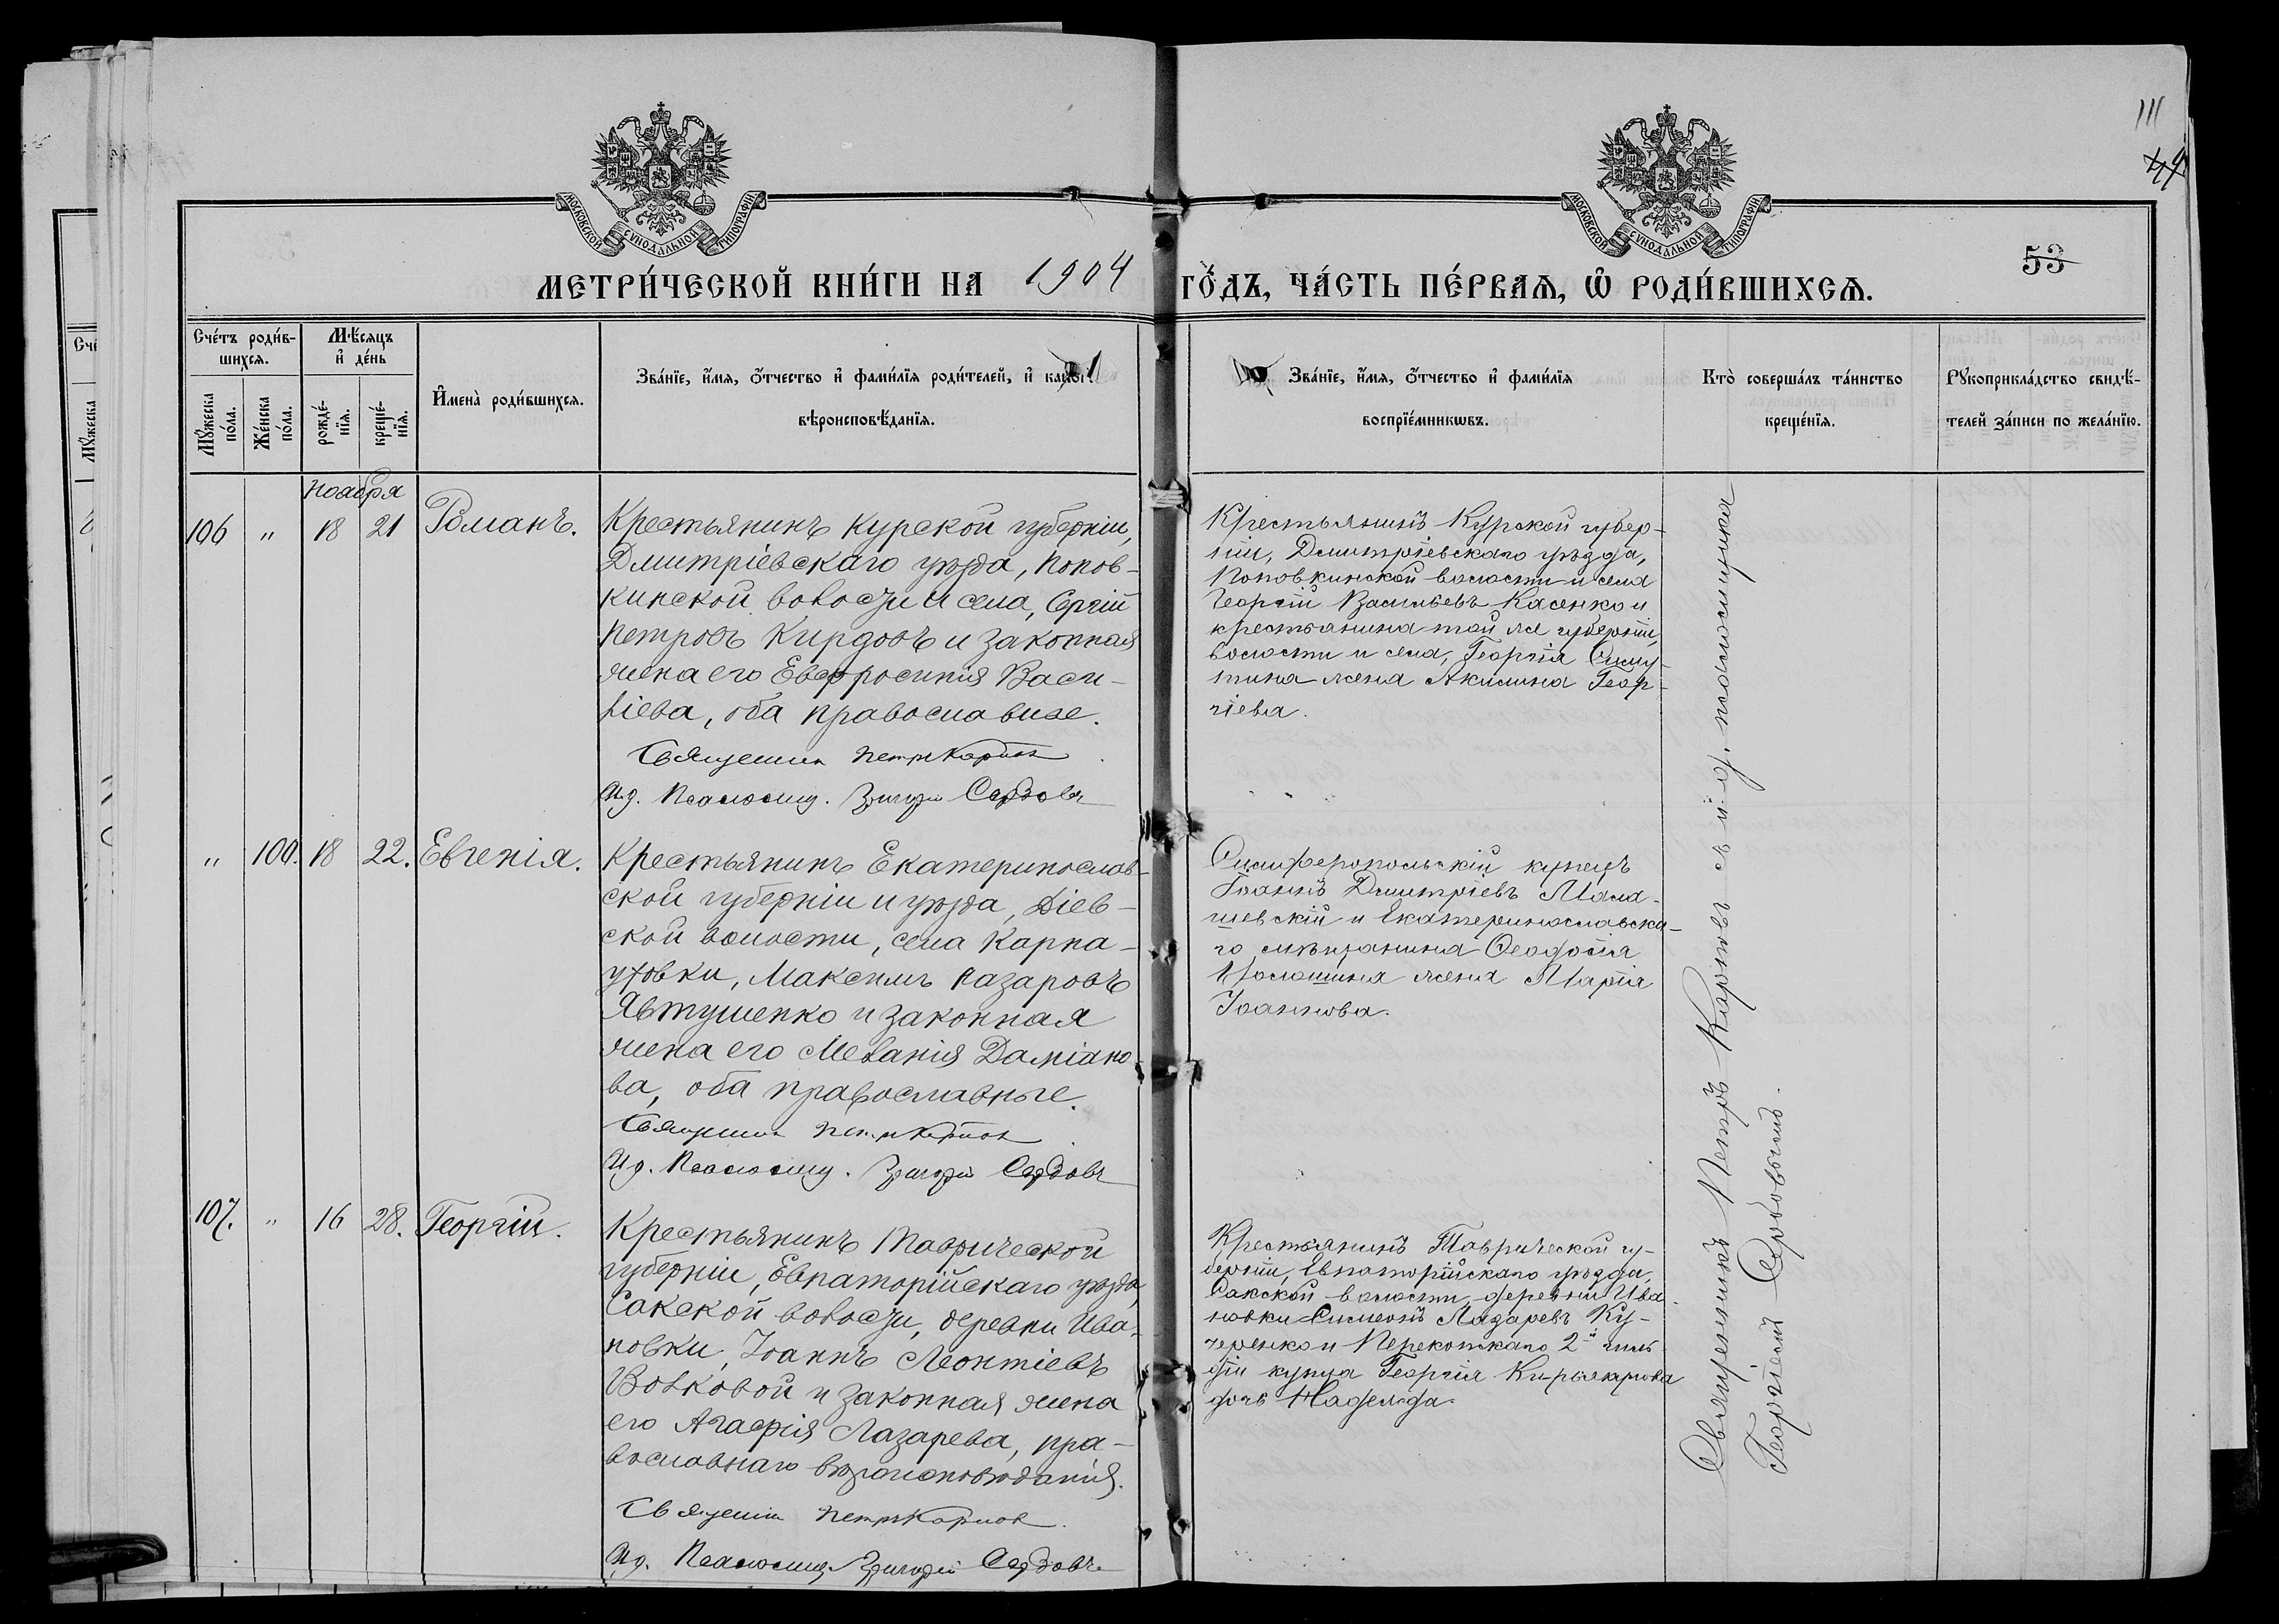 111
53
МОСКОВСКОЙ СУНОДАЛЬНОЙ ТИПОГРАФІИ
МОСКОВСКОЙ СУНОДАЛЬНОЙ ТИПОГРАФІИ
МЕТРИ́ЧЕСКОЙ КНИ́ГИ НА 1904 ГО́ДЪ, ЧА́СТЬ ПЕ́РВАЯ, Ѡ РОДИ́ВШИХСЯ.
Сче́тъ роди́в-
шихся.
Мꙋ́жеска по́ла.
Же́нска по́ла.
Мѣ́сяцъ и҆ де́нь
рожде́-
нїя.
креще́-
нїя.
И҆мена̀ роди́вшихся.
Зва́нїе, и҆́мя, ѻ҆́тчество и҆ фами́лїя роди́телей, и҆
вѣроисповѣ́данїя.
Зва́нїе, и҆́мя, ѻ҆́тчество и҆ фами́лїя
воспрїе́мникѡвъ.
Кто̀ соверша́лъ та́инство
креще́нїя.
Рꙋкоприкла́дство свидѣ́-
телей за́писи по жела́нїю.
Ноября
106 " 18 21 Романъ.
Крестьянинъ Курской губерніи,
Дмитріевскаго уѣзда, Попов-
кинской волости и села, Сергій
Петровъ Кирдовъ и законная
жена его Евфросинія Васи-
ліева, оба православные.
Священник Петръ Карпов
И.д. Псаломщ. Григорій
Крестьянинъ Курской губер-
ніи, Дмитріевскаго уѣзда,
Поповкинской волости и села
Георгій Васильевъ Касенко и
крестьянина той же губерніи,
волости и села, Георгія Симу-
тина жена Акилина Геор-
гіева.
" 100. 18 22. Евгенія.
Крестьянинъ Екатеринослав-
ской губерніи и уѣзда, Діев-
ской волости, села Карна-
уховки, Максимъ Лазаровъ
Явтушенко и законная
жена его Меланія Даміано-
ва, оба православные.
Священник Петръ Карпов
И.д. Псаломщ. Григорій
Симферопольскій купецъ
Іоаннъ Дмитріевъ Мала-
шевскій и Екатеринославска-
го мѣщанина Ѳеодосія
жена Марія
Іоаннова.
107. " 16 28. Георгій.
Крестьянинъ Таврической
губерніи, Евпаторійскаго уѣзда,
Сакской волости, деревни Ива-
новки, Іоаннъ Леонтіевъ
Волковой и законная жена
его Агафія Лазарева, пра-
вославнаго вѣроисповѣданія.
Священник Петръ Карпов
И.д. Псаломщ. Григорій
Крестьянинъ Таврической гу-
берніи, Евпаторійскаго уѣзда,
Сакской волости, деревни Ива-
новки Симеонъ Лазаревъ Ку-
черенко и Перекопскаго 2-й гиль-
діи купца Георгія Кирьякова
дочь Надежда.
Священникъ Петръ Карповъ съ и. д. псаломщика
Георгіемъ Сербовымъ.